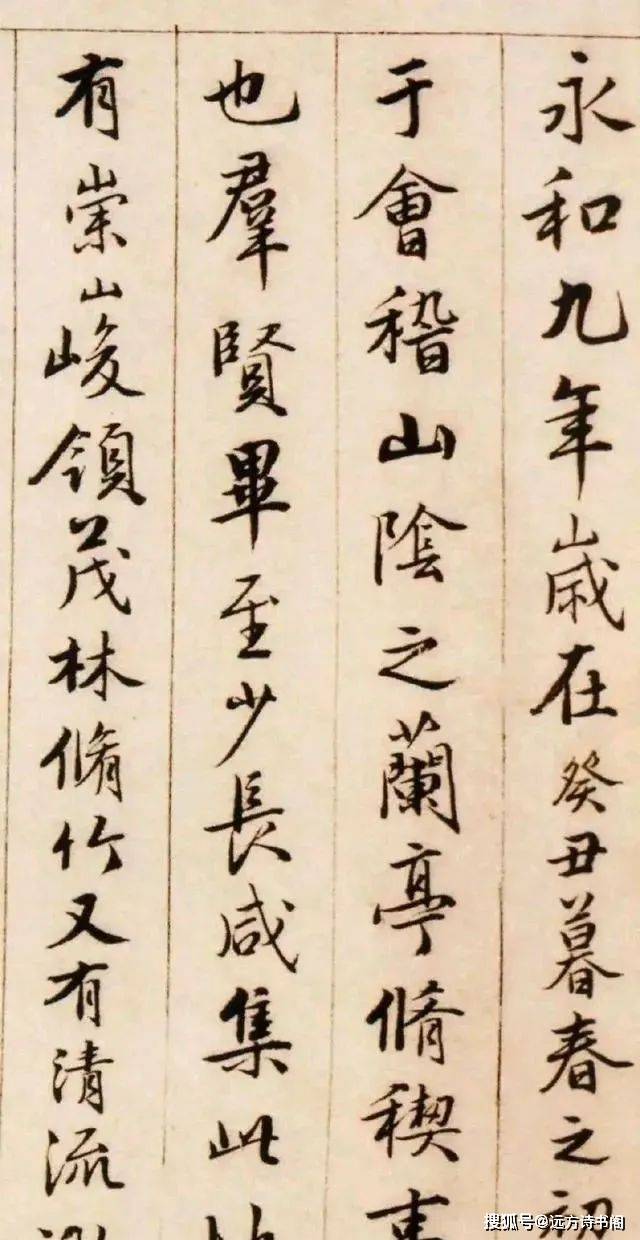 永和九年歲在癸丑暮春之初
于會稽山陰之蘭亭脩稧事
也羣賢畢至少長咸集此地
有崇山峻領茂林脩竹又有清流
搜狐号@远方诗书阁